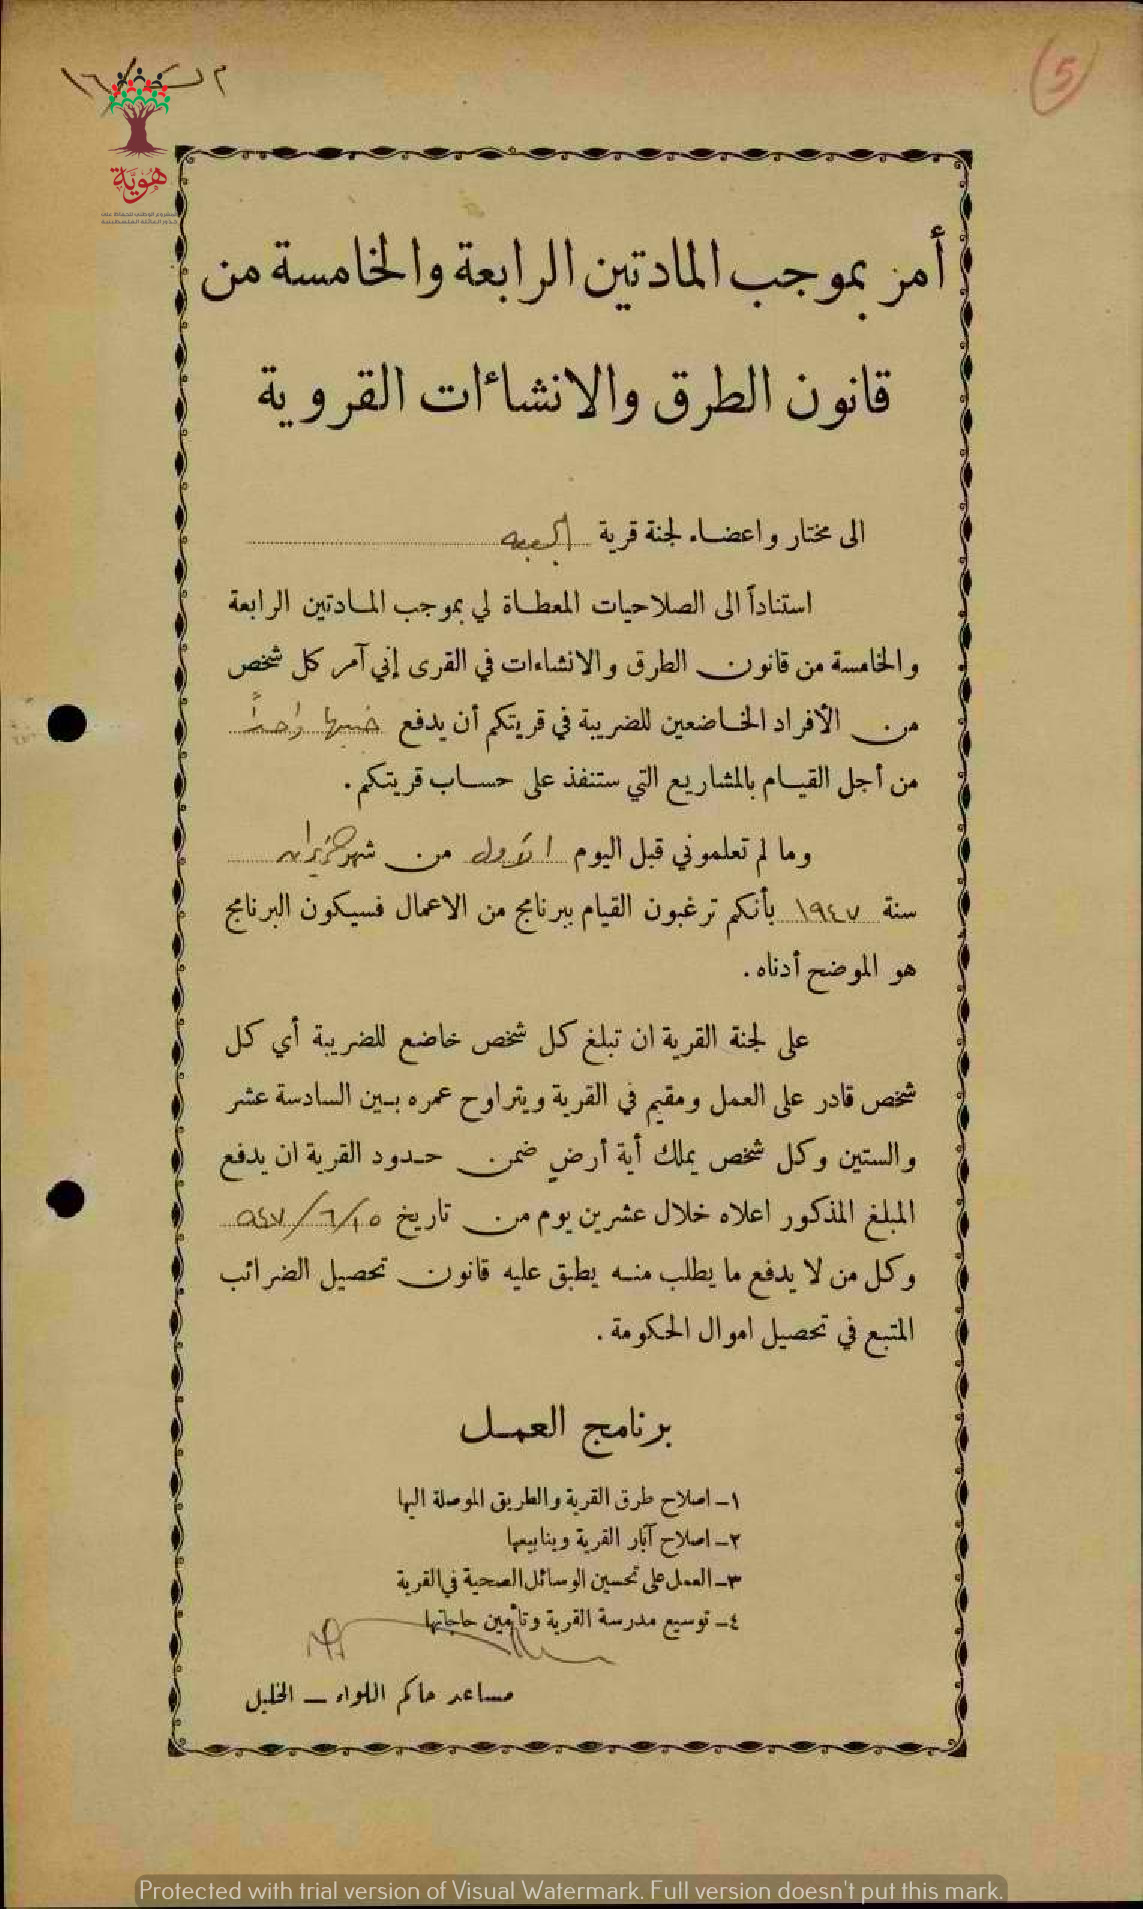 5
هُويَّة
أمر بموجب المادتين الرابعة والخامسة من
قانون الطرق والانشاءات القروية
الى مختار واعضاء لجنة قرية
استناداً الى الصلاحيات المعطاة لي بموجب المادتين الرابعة
والخامسة من قانون الطرق والانشاءات في القرى إني آمر كل شخص
من الأفراد الخاضعين للضريبة في قريتكم أن يدفع جنيها واحداً
من أجل القيام بالمشاريع التي ستنفذ على حساب قريتكم.
وما لم تعلموني قبل اليوم الاول من شهر حزيران
سنة ١٩٤٧ بأنكم ترغبون القيام ببرنامج من الاعمال فسيكون البرنامج
هو الموضح أدناه.
على لجنة القرية ان تبلغ كل شخص خاضع للضريبة أي كل
شخص قادر على العمل ومقيم في القرية ويتراوح عمره بين السادسة عشر
والستين وكل شخص يملك أية أرض ضمن حدود القرية ان يدفع
المبلغ المذكور اعلاه خلال عشرين يوم من تاريخ ١٥/٦/٩٤٧
وكل من لا يدفع ما يطلب منه يطبق عليه قانون تحصيل الضرائب
المتبع في تحصيل اموال الحكومة.
برنامج العمل
١- اصلاح طرق القرية والطريق الموصلة اليها
٢- اصلاح آبار القرية وينابيعها
٣- العمل على تحسين الوسائل الصحية في القرية
٤- توسيع مدرسة القرية وتأمين حاجاتها
مساعد حاكم اللواء - الخليل
Protected with trial version of Visual Watermark. Full version doesn't put this mark.